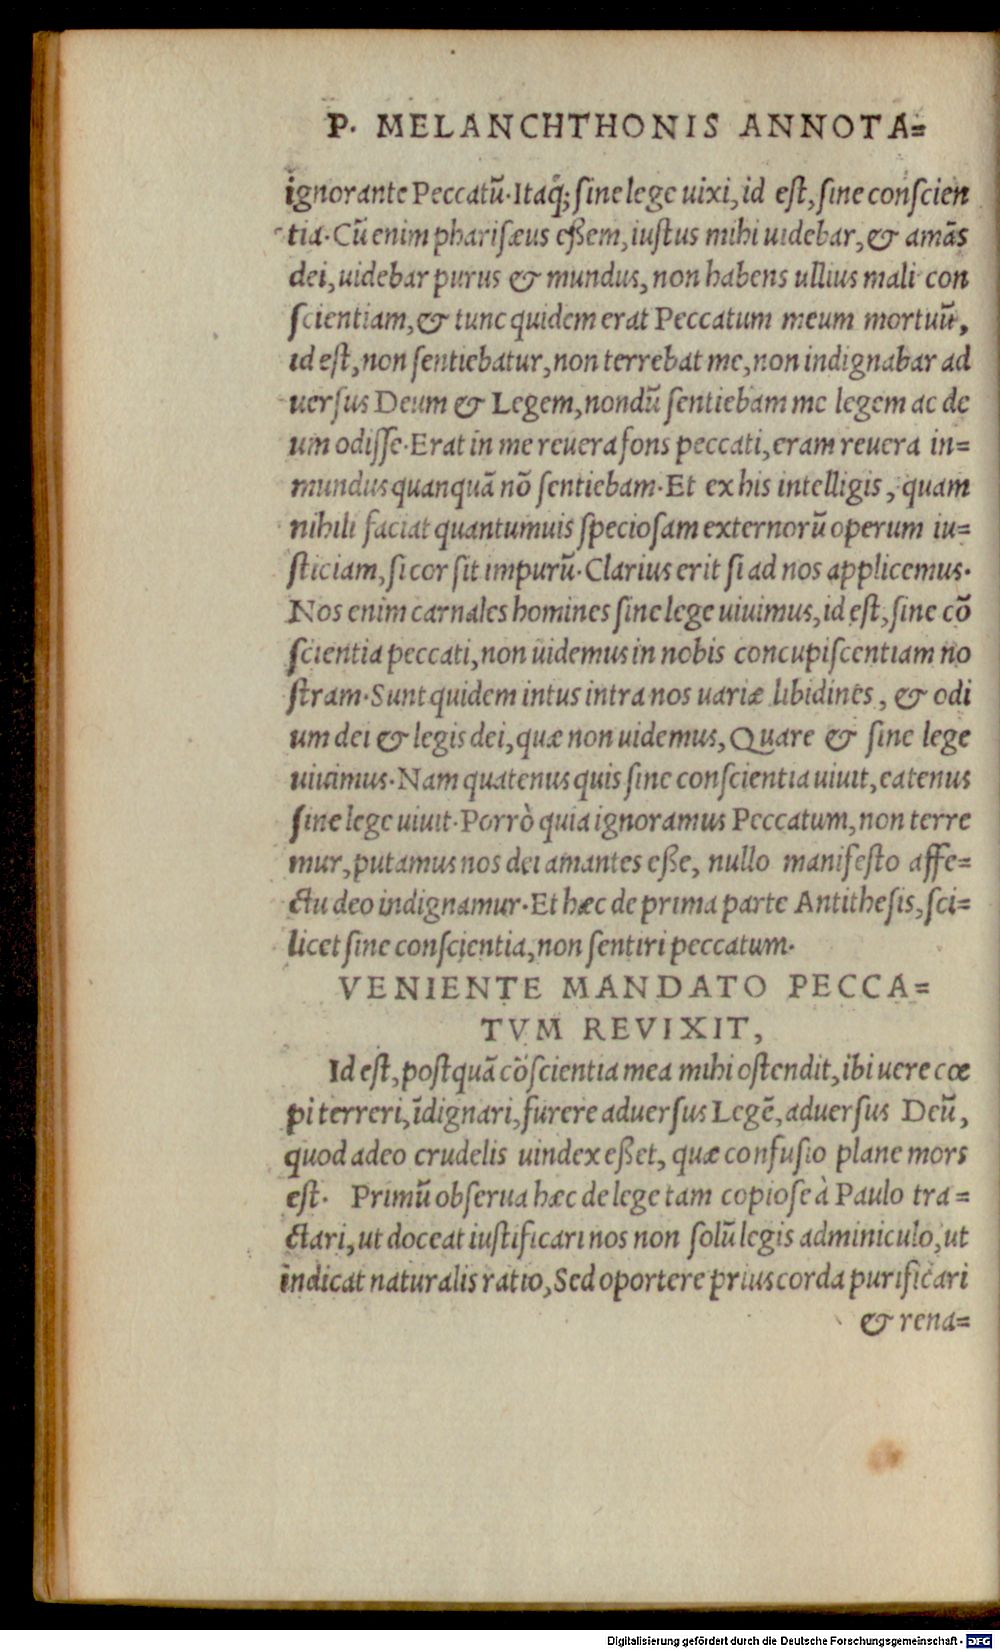 P. MELANCHTHONIS ANNOTA=
ignorante Peccatũ. Itaq̃; ſine lege uixi, id eſt, ſine conſcien
tia. Cũ enim phariſæus eßem, iuſtus mihi uidebar, & amãs
dei, uidebar purus & mundus, non habens ullius mali con
ſcientiam, & tunc quidem erat Peccatum meum mortuũ,
id eſt, non ſentiebatur, non terrebat me, non indignabar ad
uerſus Deum & Legem, nondũ ſentiebam me legem ac de
um odiſſe. Erat in me reuera fons peccati, eram reuera in=
mundus quanquã nõ ſentiebam. Et ex his intelligis, quam
nihili faciat quantumuis ſpecioſam externorũ operum iu=
ſticiam, ſi cor ſit impurũ. Clarius erit ſi ad nos applicemus.
Nos enim carnales homines ſine lege uiuimus, id eſt, ſine cõ
ſcientia peccati, non uidemus in nobis concupiſcentiam no
ſtram. Sunt quidem intus intra nos uariæ libidines, & odi
um dei & legis dei, quæ non uidemus, Quare & ſine lege
uiuimus. Nam quatenus quis ſine conſcientia uiuit, eatenus
ſine lege uiuit. Porrò quia ignoramus Peccatum, non terre
mur, putamus nos dei amantes eße, nullo manifeſto affe=
ctu deo indignamur. Et hæc de prima parte Antitheſis, ſci=
licet ſine conſcientia, non ſentiri peccatum.
VENIENTE MANDATO PECCA=
TVM REVIXIT,
Id eſt, poſtquã cõſcientia mea mihi oſtendit, ibi uere cœ
pi terreri, ĩdignari, furere aduerſus Legẽ, aduerſus Deũ,
quod adeo crudelis uindex eßet, quæ confuſio plane mors
eſt. Primũ obſerua hæc de lege tam copioſe à Paulo tra=
ctari, ut doceat iuſtificari nos non ſolũ legis adminiculo, ut
indicat naturalis ratio, Sed oportere prius corda purificari
& rena=
Digitalisierung gefördert durch die Deutsche Forschungsgemeinschaft - DFG